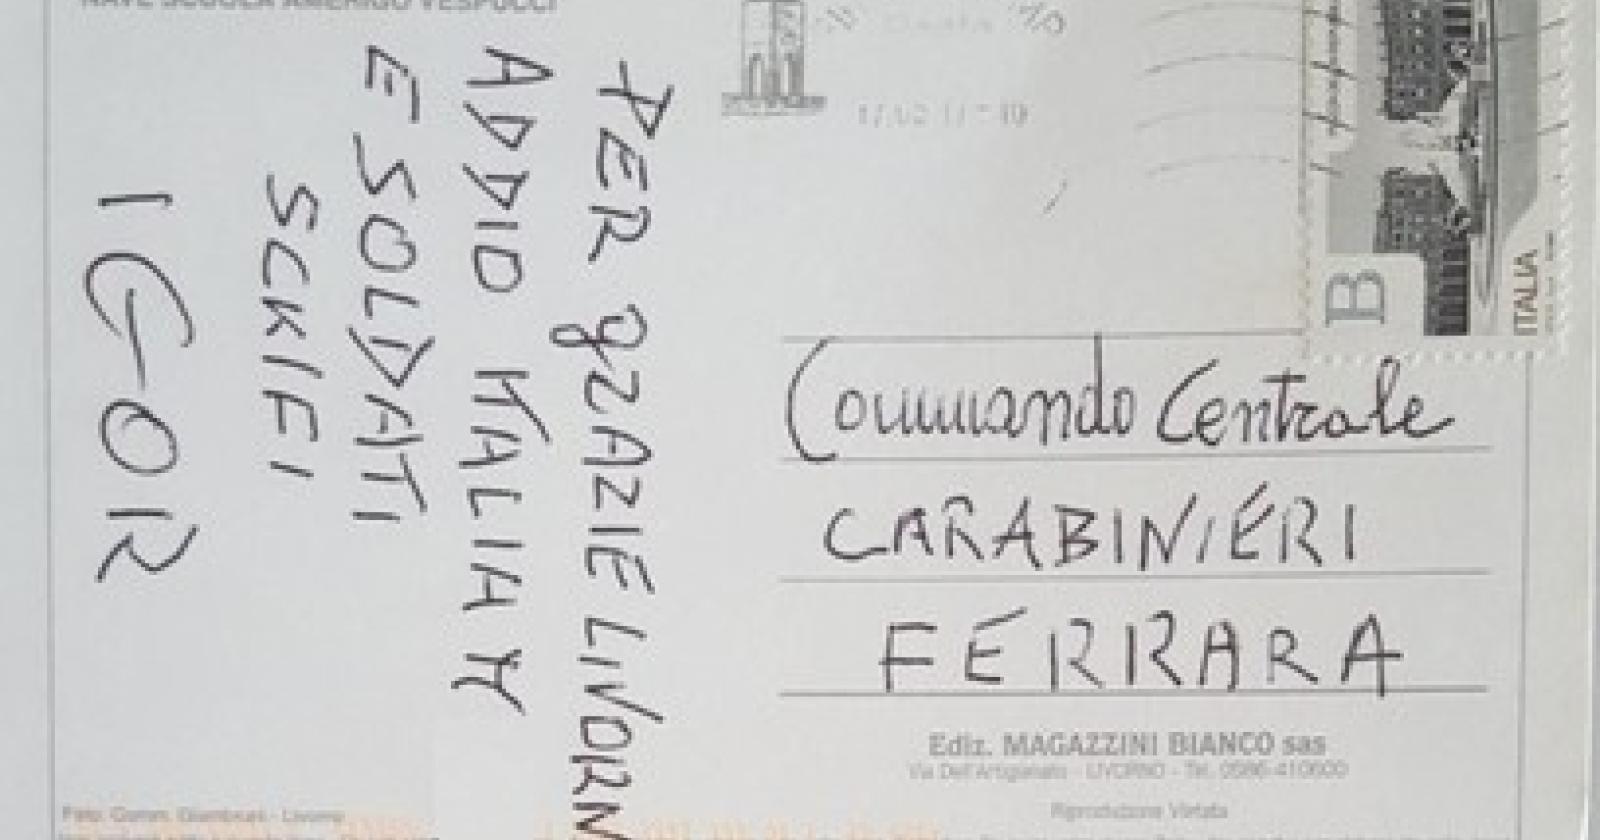 NAVE SCUOLA AMERIGO VESPUCCI
PER gRAZIE LIVORN
ADDIO KALIAK
E SOLDATI
SCKIFI
IGOR
B
ITALIA
Commando Centrale
CARABINIERI
FERRARA
Ediz. MAGAZZINI BIANCO sas
Via Dell'Artigianato - LIVORNO - Tel. 0586-410600
Riproduzione Vietata
Foto: Comm. Giambruni - Livorno